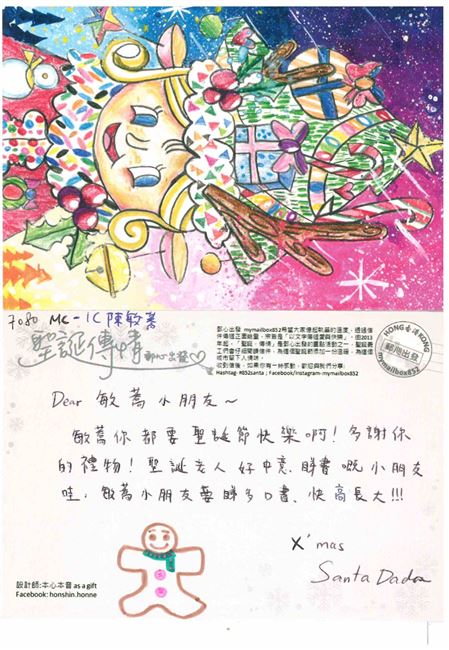 7080 MC-1C 陳敏蕎
聖誕傳情 郵心出發
郵心出發 mymailbox852希望大家憶起執筆的溫度，透過信
件傳遞正面能量，宗旨是「以文字傳遞愛與快樂」，由2013
年起，「聖誕．傳情」是郵心出發的重點活動之一，聖誕義
工們會仔細閱讀信件，為這個聖誕節添加一份溫暖，為這個
城市留下人情味。
收到信後，如果你有一絲感動，歡迎與我們分享：
Hashtag- #852santa | Facebook/Instagram-mymailbox852
HONG 香港 KONG
郵心出發
mymailbox852
Dear 敏蕎 小朋友～
敏蕎你都要聖誕節快樂啊！多謝你
的禮物！聖誕老人好中意睇書嘅小朋友
哇，敏蕎小朋友要睇多D書，快高長大!!!
X'mas
Santa Dada
設計師:本心本音 as a gift
Facebook: honshin.honne